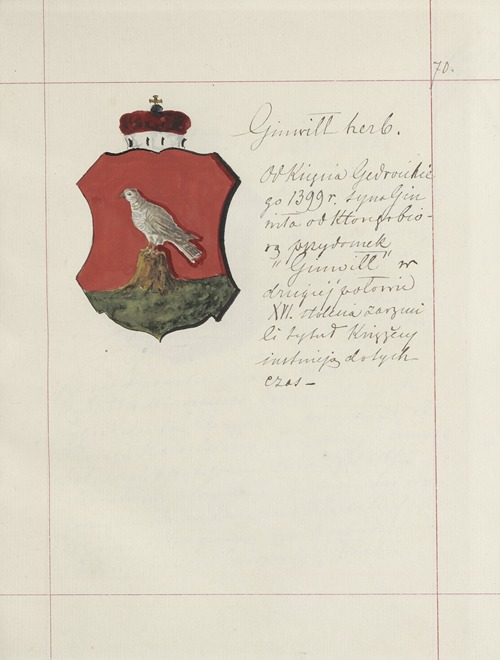 70.
Ginwiłł herb.
Od Kięcia Gedroickie
go 1399 r. syna Gin
wiła od którego bio-
rą przydomek
"Ginwiłł" w
drugiéj połowie
XVI. stolecia zarzuci
li tytuł Książęcy
istnieją do tych
czas –